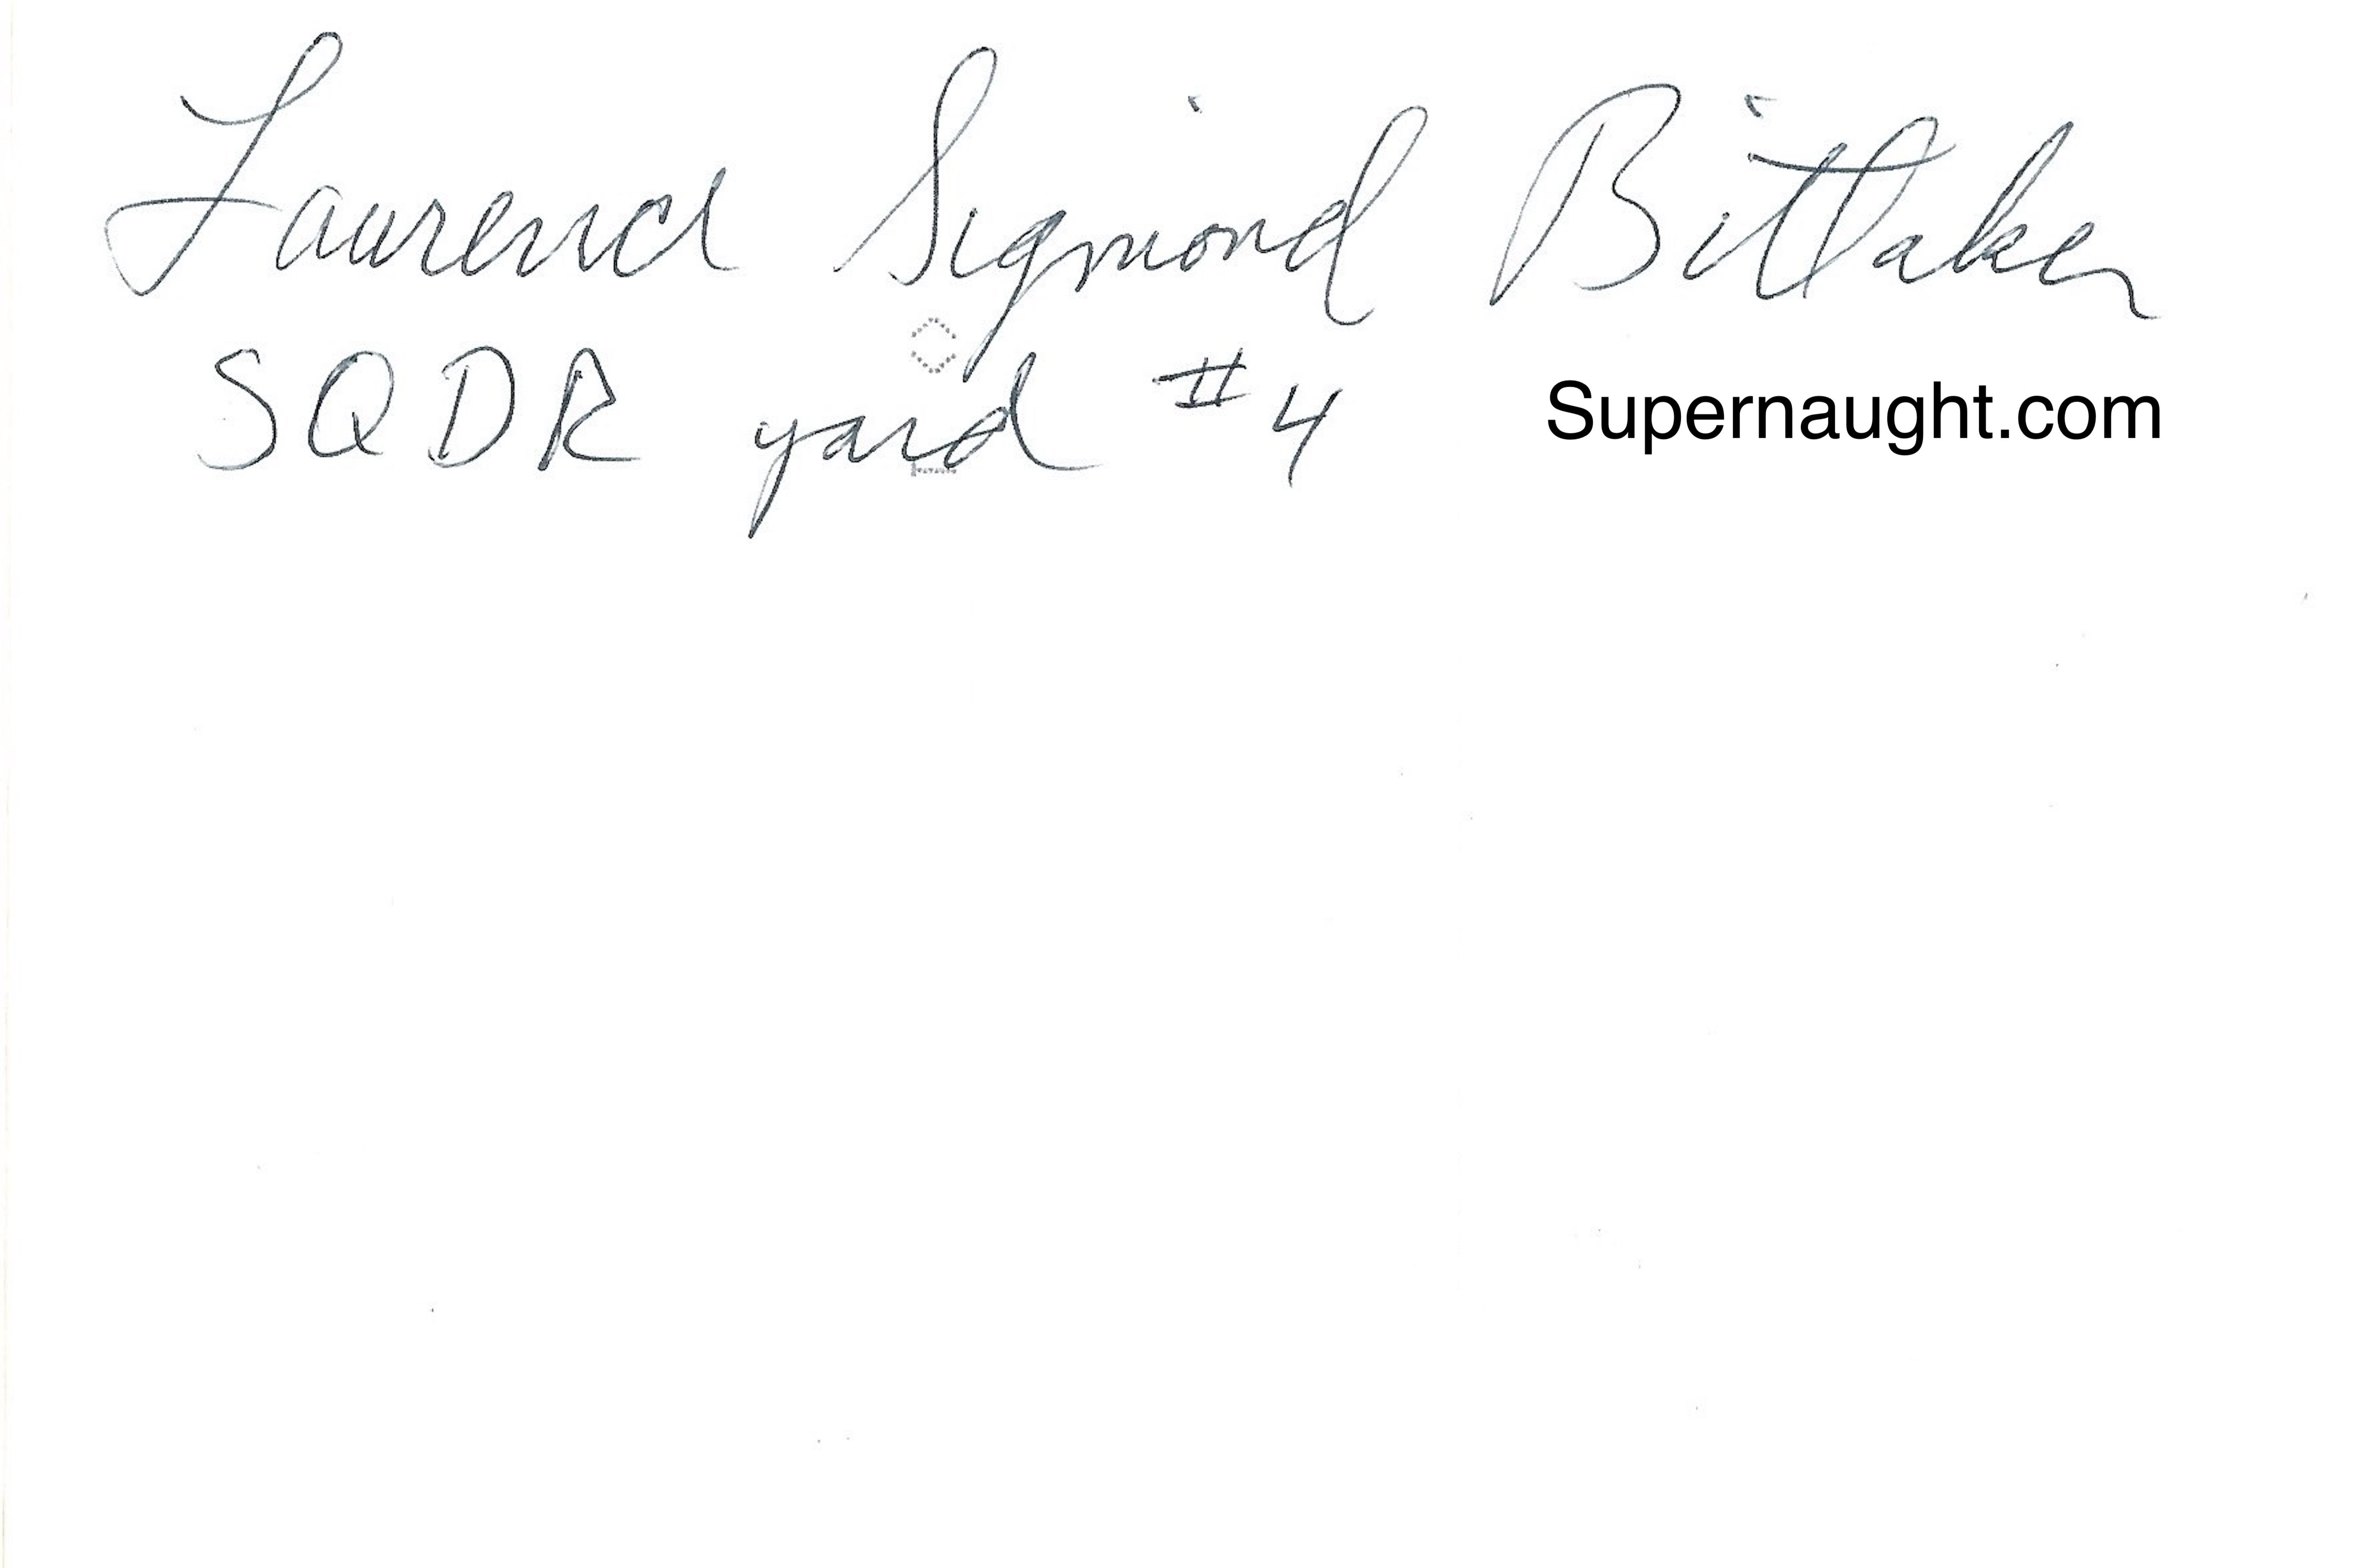 Lawrence Sigmond Bittaker
SQDR yard #4
Supernaught.com